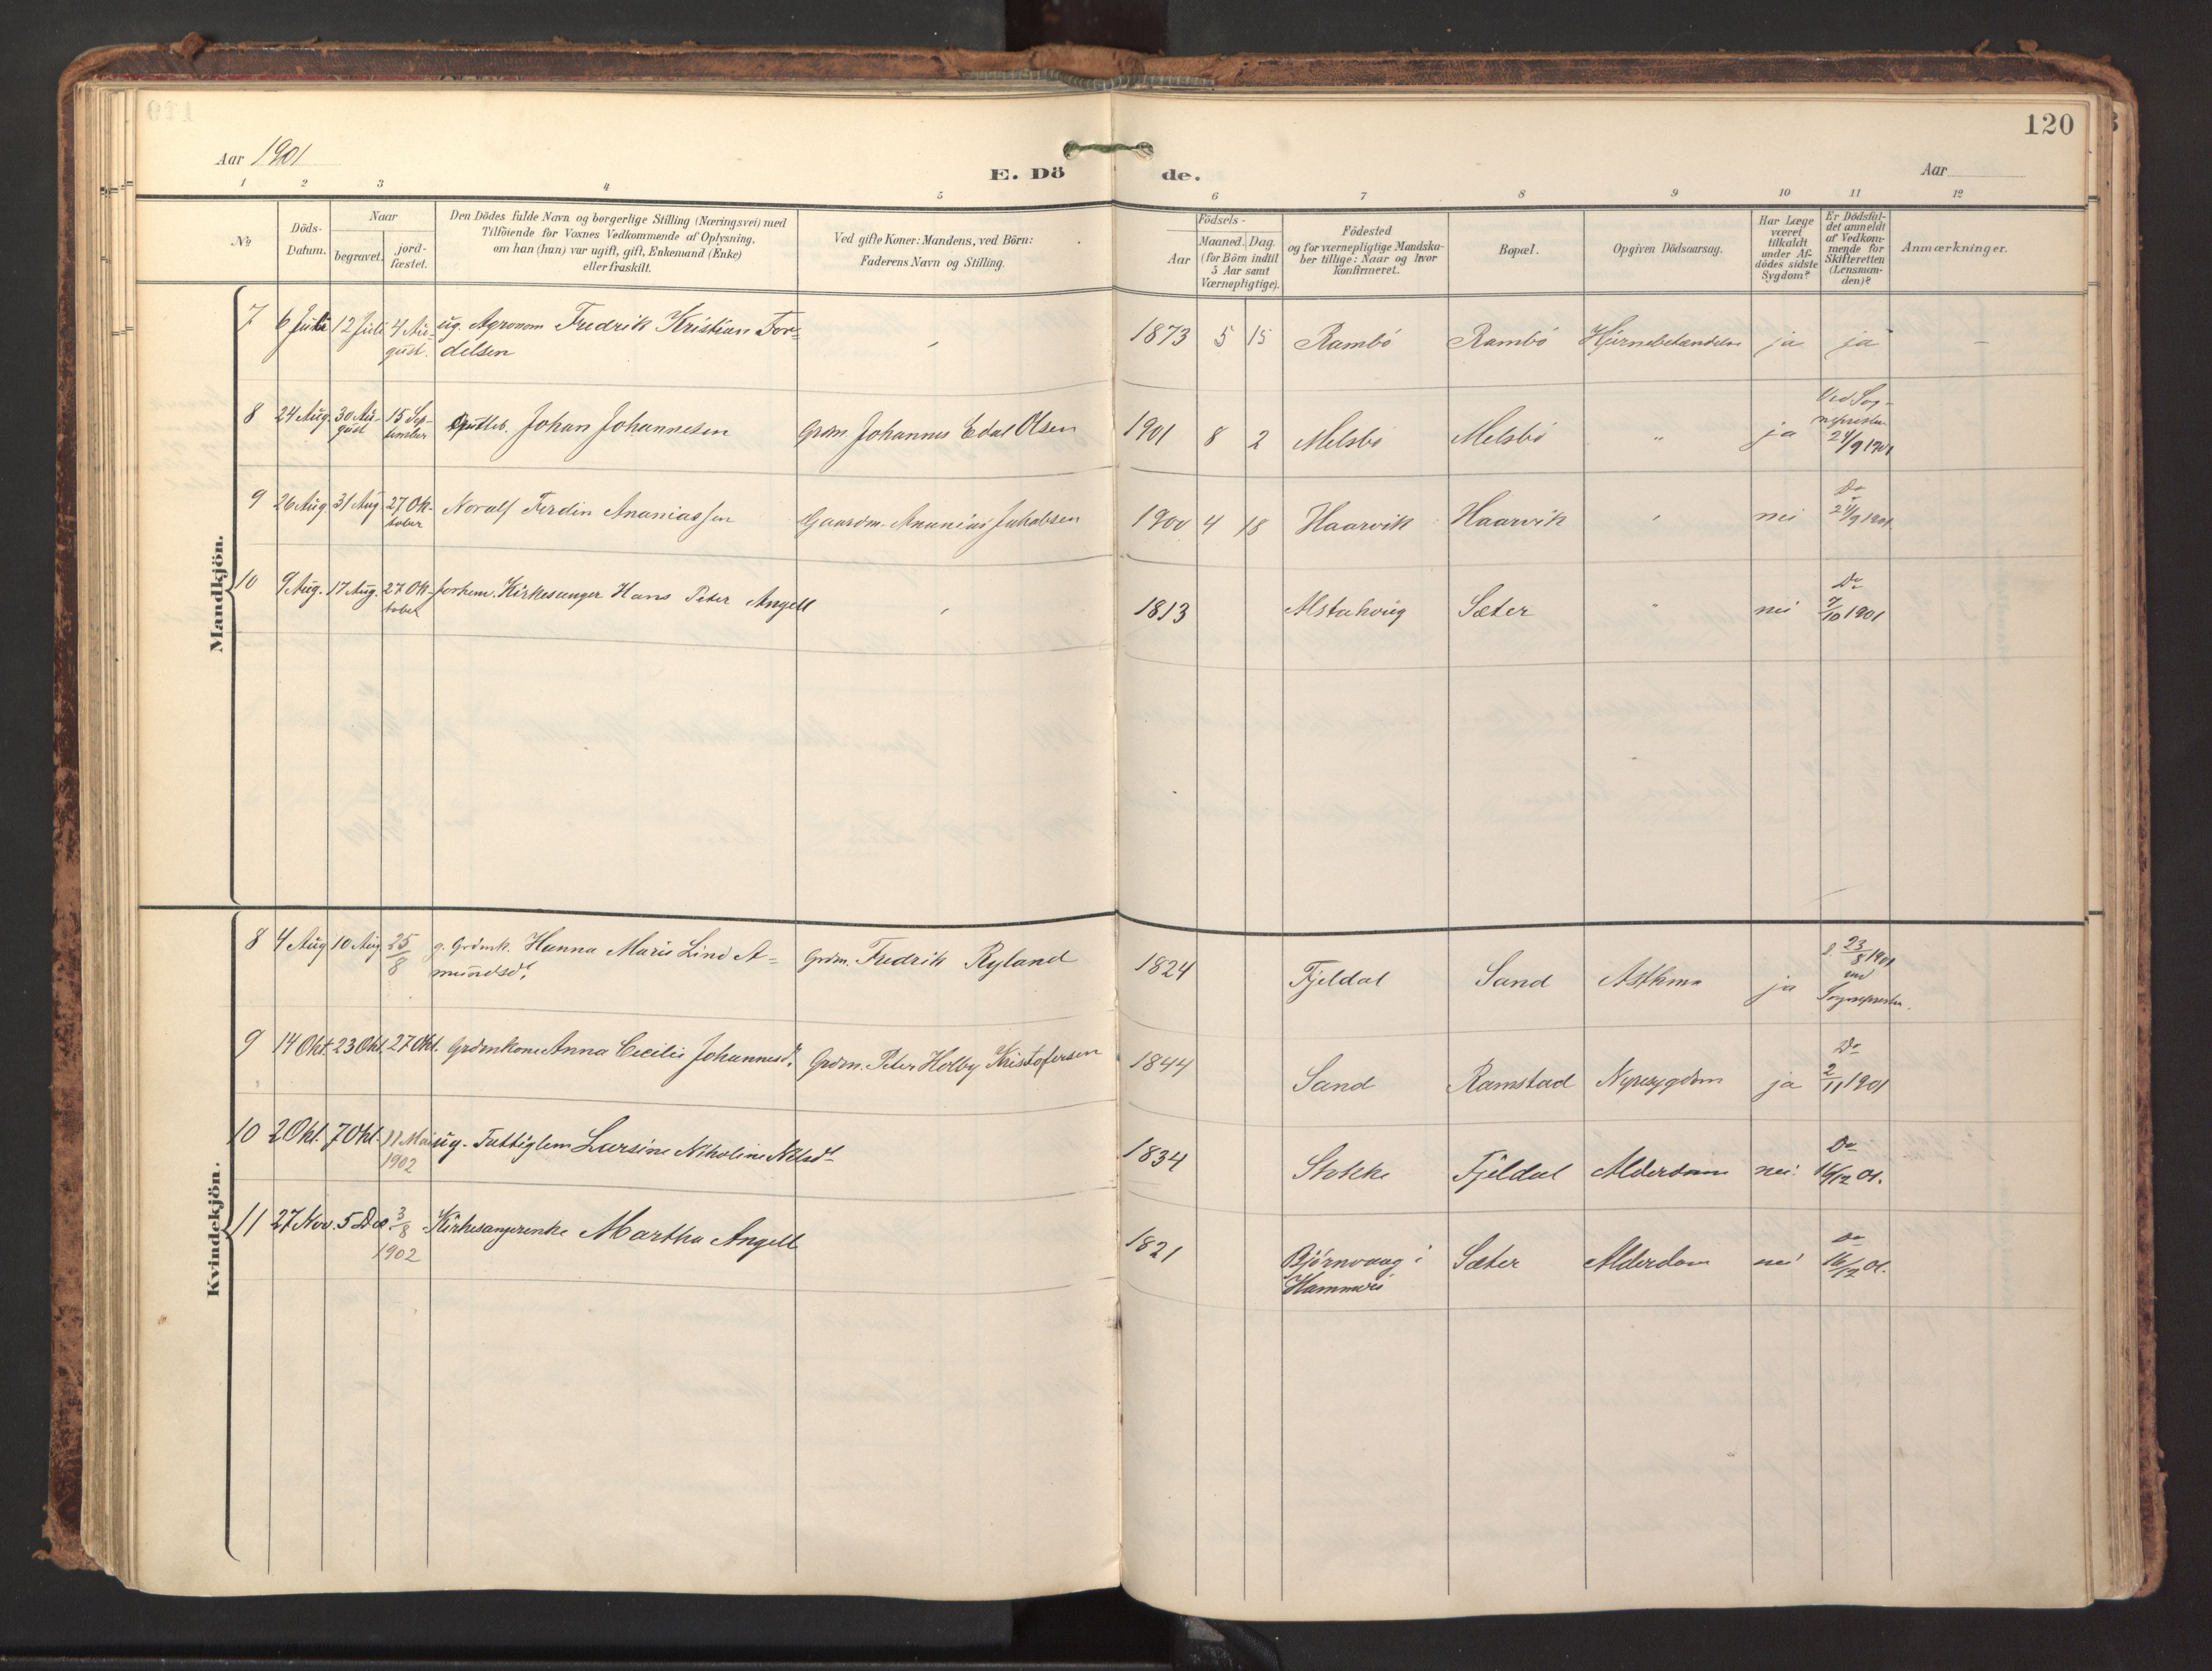 120
Aar 1901
E. Dö de.
Aar
1 2 3 4 5 6 7 8 9 10 11 12
№
Döds-
Datum.
Naar
begravet.
jord-
fæstet.
Den Dödes fulde Navn og borgerlige Stilling (Næringsvei) med
Tilföiende for Voxnes Vedkommende af Oplysning.
om han (hun) var ugift, gift, Enkemand (Enke)
eller fraskilt.
Ved gifte Koner: Mandens, ved Börn:
Faderens Navn og Stilling.
Födsels-
Aar
Maaned. Dag.
(for Börn indtil
5 Aar samt
Værnepligtige).
Födested
og for værnepligtige Mandska-
ber tillige: Naar og hvor
Konfirmeret.
Bopæl.
Opgiven Dödsaarsag.
Har Læge
været
tilkaldt
under Af-
dödes sidste
Sygdom?
Er Dödsfal-
det anmeldt
af Vedkom-
mende for
Skifteretten
(Lensman-
den)?
Anmærkninger.
Mandkjön.
7 6 Juli 12 Juli 4 Au- ug. Agronom Fredrik Kristian Tor- 1873 5 15 Rambö Rambö Hjernebetændelse ja ja
gust. dilsen
8 24 Aug. 30 Au- 15 Sep- Johan Johannesen Grdm. Johannes Edal Olsen 1901 8 2 Melsbö Melsbö " ja Ved Sog-
gust tember nepresten
24/9 1901
9 26 Aug 31 Aug 27 Ok- Noralf Ferdin Ananiassen Gaardm. Ananias Jakobsen 1900 4 18 Haarvik Haarvik nei Do
tober 24/9 1901
10 9 Aug. 17 Aug. 27 Ok- forhenv. Kirkesanger Hans Peter Angell 1813 Alstahoug Sæter " nei Do
tober 7/10 1901
Kvindekjön.
8 4 Aug 10 Aug 25/8 g. Grdmk. Hanna Marie Lind A- Grdm. Fredrik Ryland 1824 Fjeldal Sand Asthma ja 23/8 1901
mundsdt. ved
Sognepresten.
9 14 Okt. 23 Okt. 27 Okt. Grdmkone Anna Cecilie Johannesdt. Grdm. Peter Holby Kristofersen 1844 Sand Ramstad Nyresygdom ja Do
2/11 1901
10 2 Okt. 7 Okt. 11 Mai ug. Fattiglem Larsine Nikoline Nilsdt 1834 Stokke Fjeldal Alderdom nei. Do
1902 16/12 01.
11 27 Nov. 5 Dec. 3/8 Kirkesangerenke Martha Angell 1821 Bjørnvaag i Sæter Alderdom nei Do
1902 Hammerö 16/12 01.